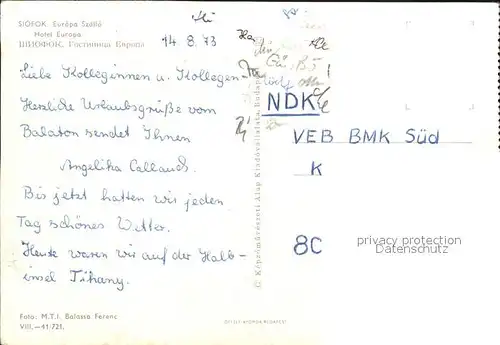 SIÓFOK Európa Szálló
Hotel Europa
ШИОФОК. Гостиница Европа
14.8.73
Liebe Kolleginnen u. Kollegen
Herzliche Urlaubsgrüße vom
Balaton sendet Ihnen
Angelika
Bis jetzt hatten wir jeden
Tag schönes Wetter.
Heute waren wir auf der Halb-
insel Tihany.
Foto: M.T.I. Balassa Ferenc
VIII.—41-721.
© Képzőművészeti Alap Kiadóvállalata, Budapest
OFFSET NYOMDA BUDAPEST
NDK
VEB BMK Süd
K
8C
privacy protection
Datenschutz